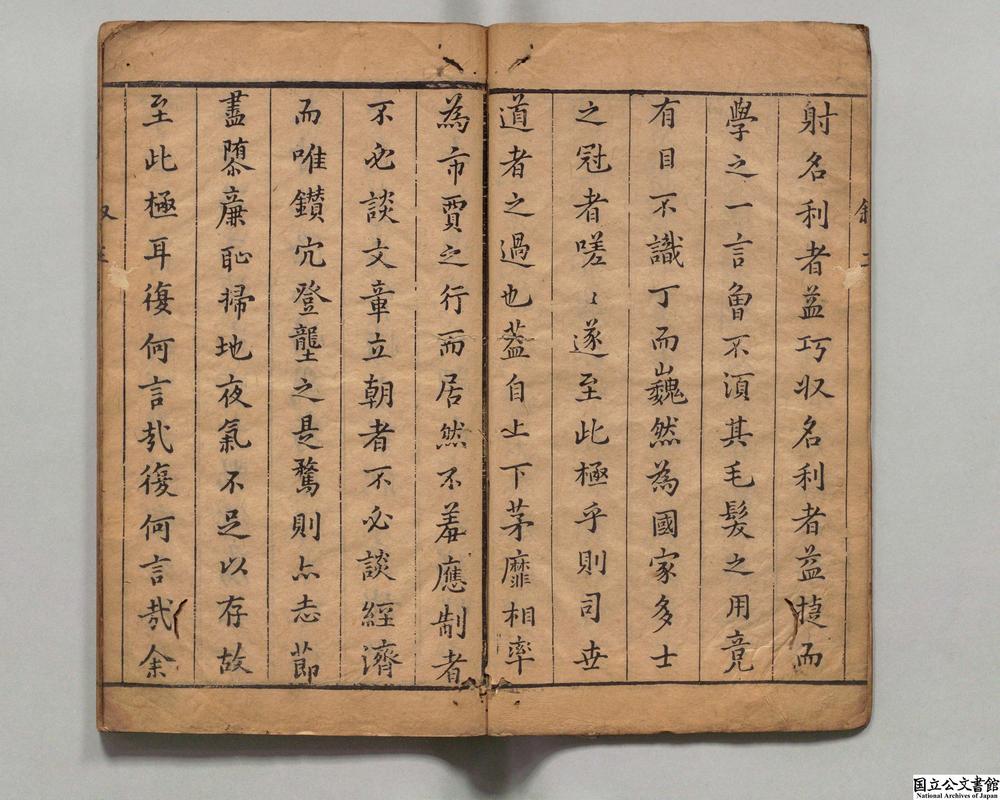 射名利者益巧収名利者益捷而
學之一言魯不湏其毛髮之用竟
有目不識丁而巍然為國家多士
之冠者嗟〻遂至此極乎則司世
道者之過也葢自上下茅靡相率
為市賈之行而居然不羞應制者
不必談文章立朝者不必談經濟
而唯鑚穴登壟之是騖則亦志節
盡隳亷恥掃地夜氣不足以存故
至此極耳復何言㢤復何言㢤余
国立公文書館
National Archives of Japan